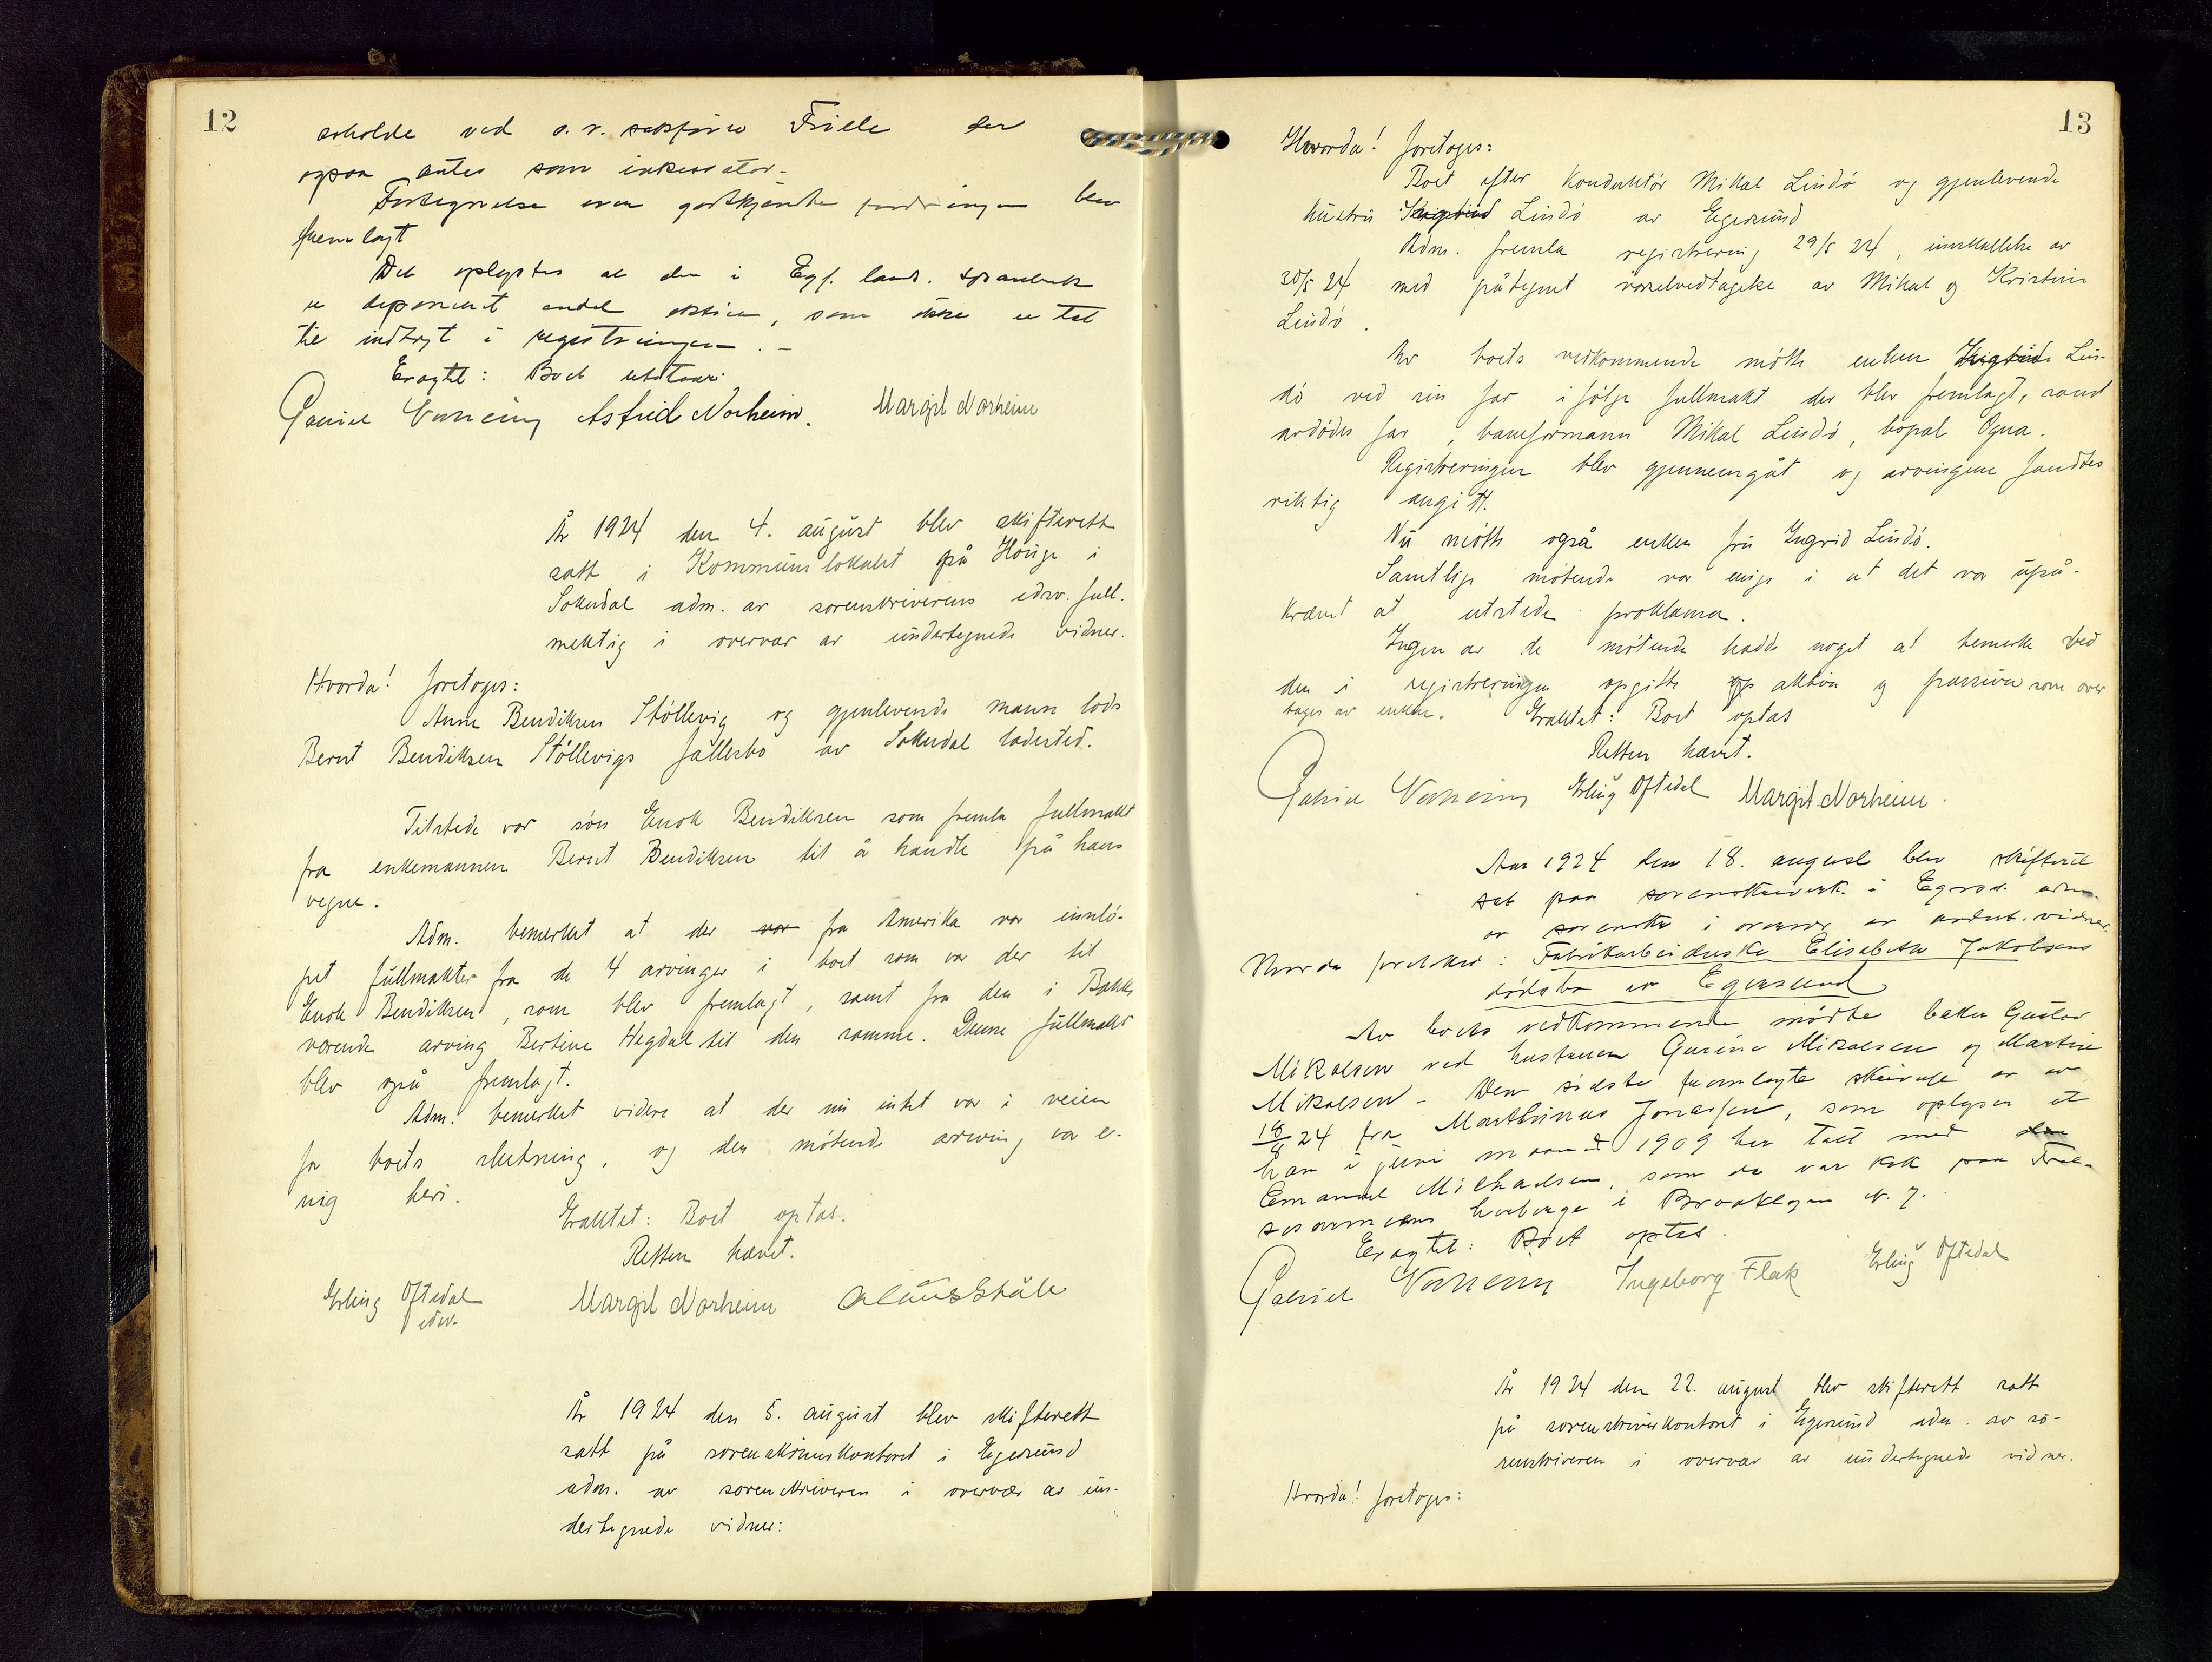 12
erholde ved o.r. sakfører Friele der
ogsaa antas som inkassator.
Fortegnelse over godtkjendte fordringer blev
fremlagt
Det oplystes at der i Egs. lands. sparebank
er deponert endel aktier, som ikke er tat
til indtægt i registreringen. -
Eragtet: Boet utstaar.
Gabriel Astrid Norheim. Margit Norheim
År 1924 den 4. august blev skifterett
satt i Kommunelokalet på Hauge i
Sokndal adm. av sorenskriverens edsv. full-
mektig i overvær av undertegnede vidner.
Hvorda! foretoges:
Anne Bendiksen Støllevig og gjenlevende mann lods
Bernt Bendiksen Støllevigs fællesbo av Sokndal ladested.
Tilstede var søn Enok Bendiksen som fremla fullmakt
fra enkemannen Bernt Bendiksen til å handle på hans
vegne.
Adm. bemerket at der var fra Amerika var innlø-
pet fullmakter fra de 4 arvinger i boet som var der til
Enok Bendiksen, som blev fremlagt, samt fra den i Bakke
værende arving Bertine Hegdal til den samme. Denne fullmakt
blev også fremlagt.
Adm. bemerket videre at der nu intet var i veien
for boets slutning, og den møtende arving var e-
nig heri.
Eraktet: Boet optas.
Retten hævet.
Erling Oftedal
edsv.
Margit Norheim Claus Ståle
År 1924 den 5. august blev skifterett
satt på sorenskriverkontoret i Egersund
adm. av sorenskriveren i overvær av un-
dertegnede vidner:
13
Hvorda! foretoges:
Boet efter konduktør Mikal Lindø og gjenlevende
hustru Lindø av Egersund
Adm. fremla registrering 29/5 24, innkallelse av
20/5 24 med påtegnet varselvedtagelse av Mikal og Kristine
Lindø.
Av boets vedkommende møtte enken Lin-
dø ved sin far ifølge fullmakt der blev fremlagt, samt
avdødes far, banformann Mikal Lindø, bopæl Ogna.
Registreringen blev gjennemgåt og arvingene fandtes
riktig angitt.
Nu møtte også enken fru Ingrid Lindø.
Samtlige møtende var enige i at det var upå-
krævet at utstede proklama.
Ingen av de møtende hadde noget at bemerke ved
den i registreringen opgitte aktiva og passiva som over
tages av enken. Eraktet: Boet optas
Retten hævet.
Gabriel Erling Oftedal Margit Norheim.
Aar 1924 den 18. august blev skifteret
sat paa sorenskriverk. i Egersd. adm.
av sorenskr. i overvær av undert. vidner.
Hvorda foretokes: Fabrikarbeiderske Elisabeth Jakobsens
dødsbo av Egersund
Av boets vedkommende mødte baker Gustav
Mikalsen ved hustruen Gurine Mikalsen og Martin
Mikalsen - Den sidste fremlagte skrivelse er av
18/8 24 fra Marthinus Jonassen, som oplyser at
han i juni maaned 1909 har talt med den
Emanuel Michaelsen, som da var kok paa Frel-
sesarmeens herberge i Brooklyn N.Y.
Eragtet: Boet optas.
Gabriel Ingeborg Flak Erling Oftedal
År 1924 den 22. august blev skifterett satt
på sorenskriverkontoret i Egersund adm. av so-
renskriveren i overvær av undertegnede vidner.
Hvorda! foretoges: